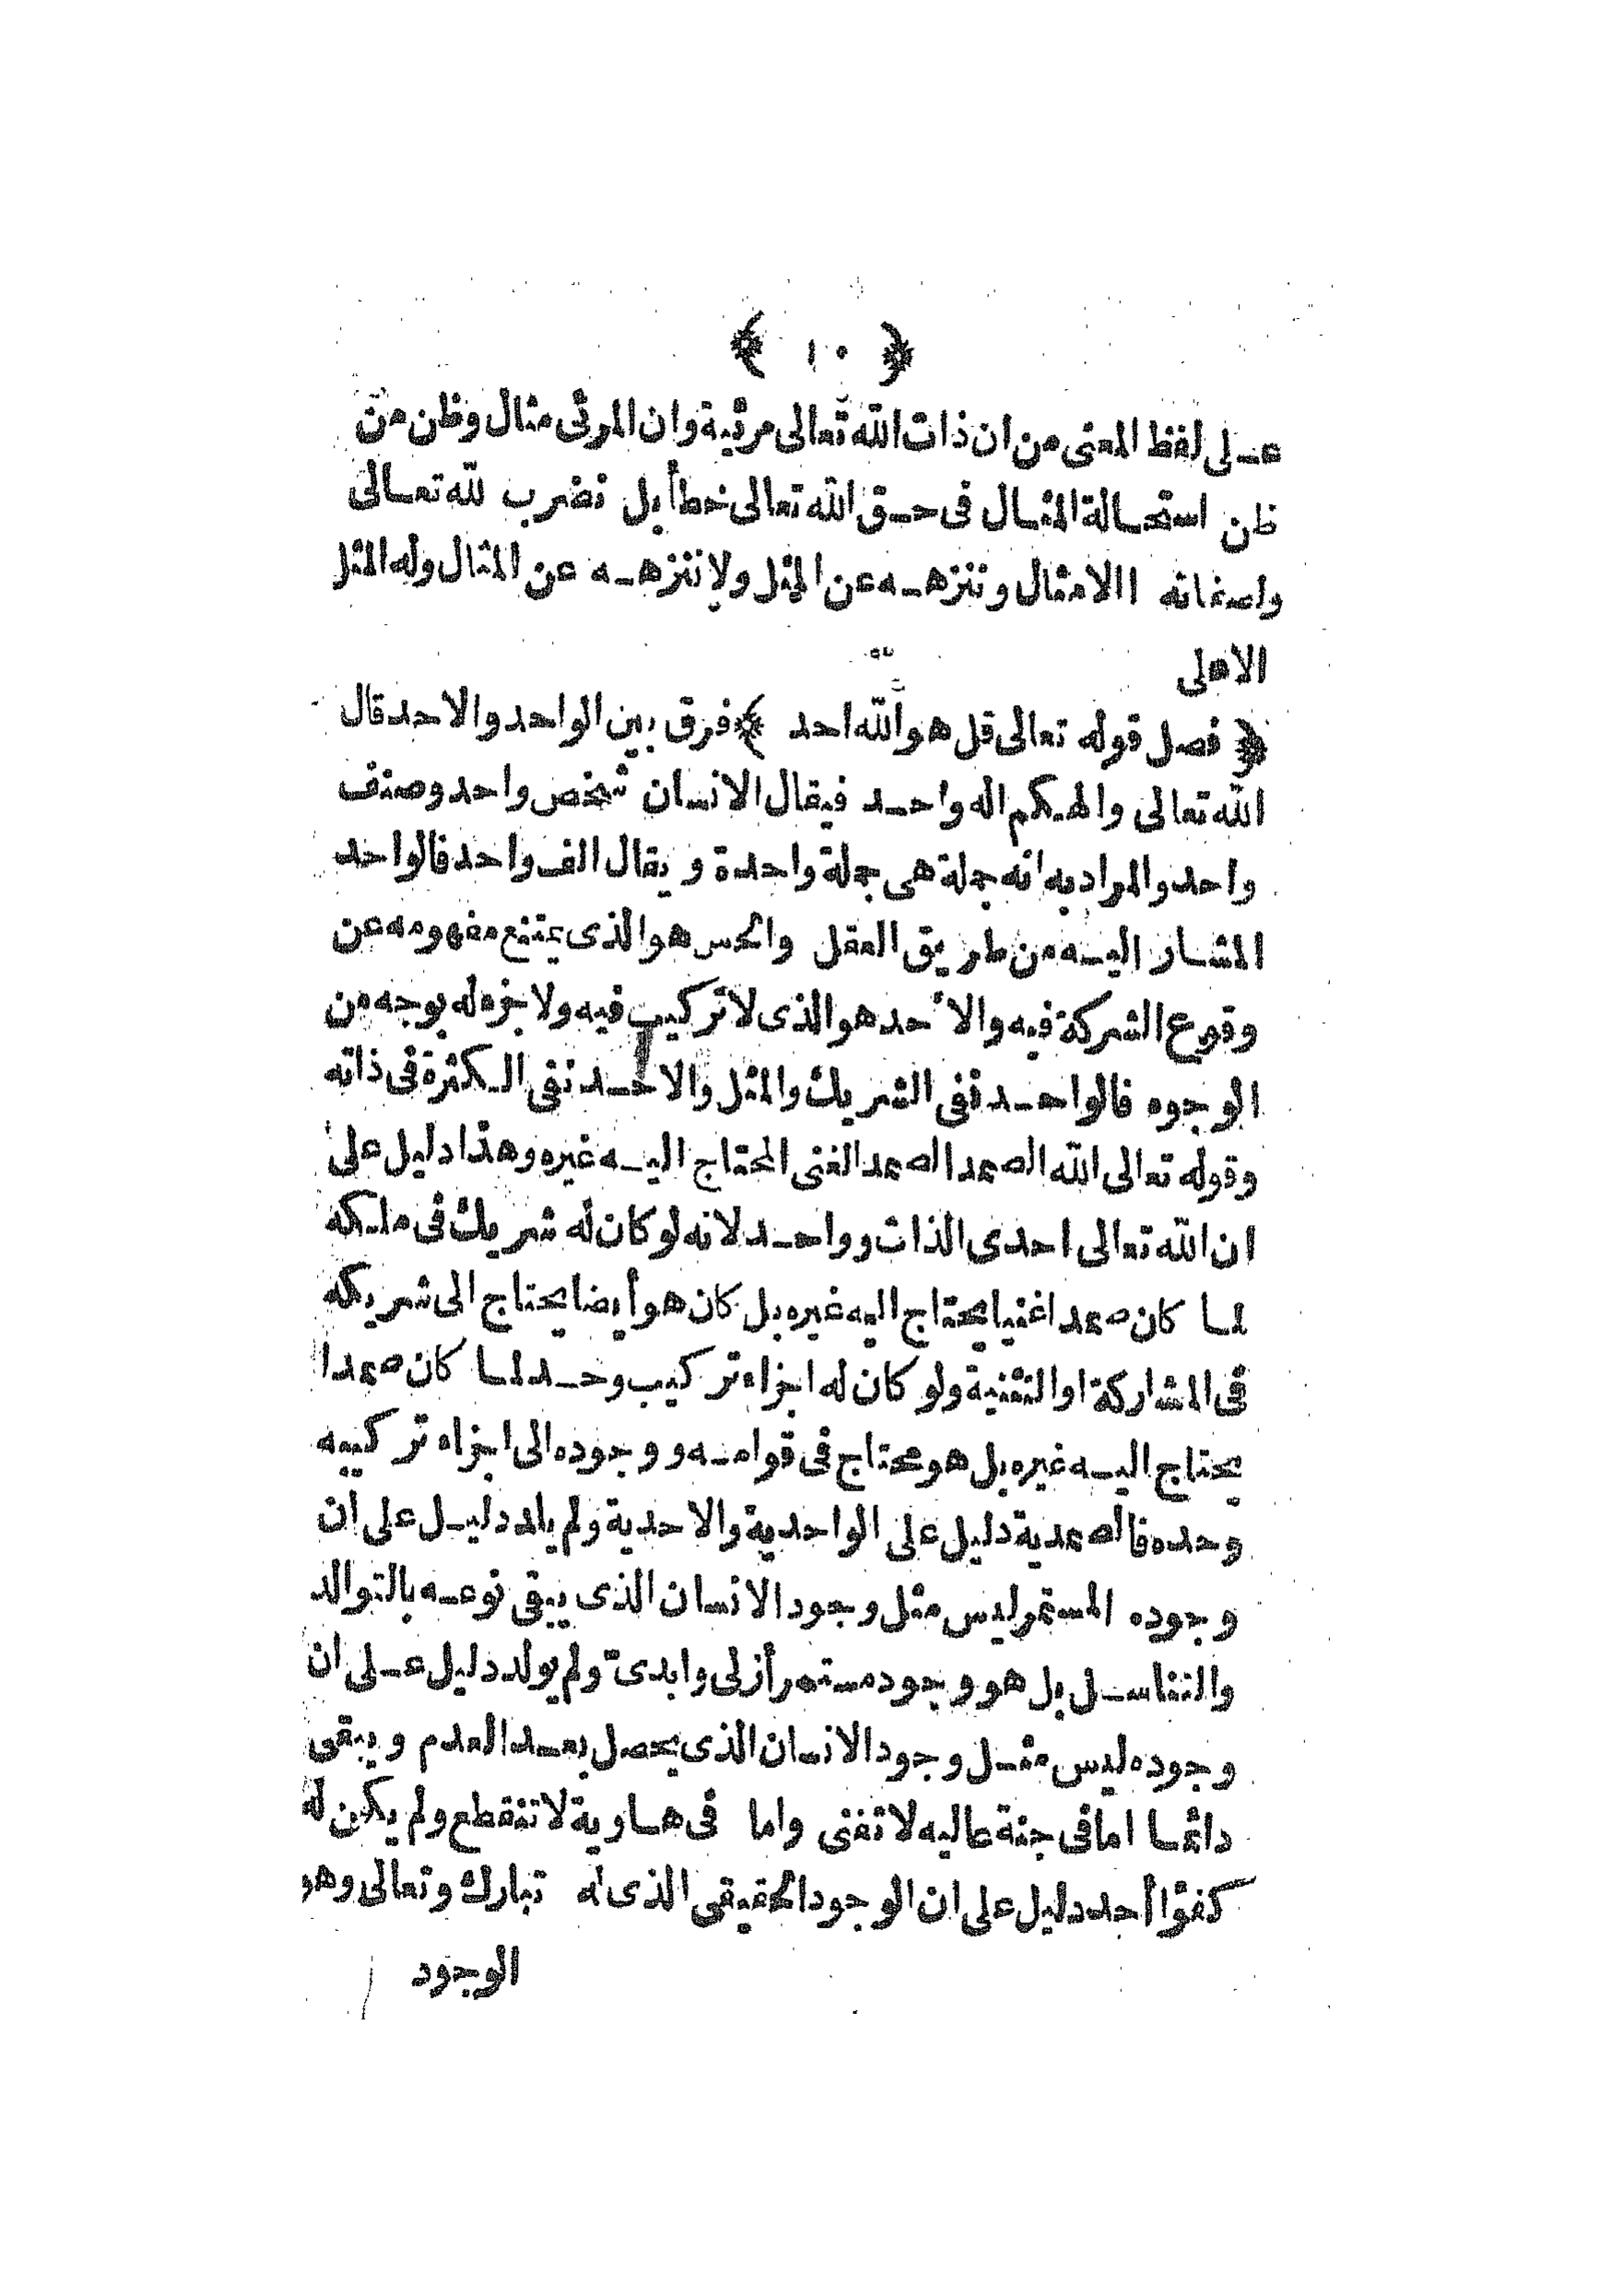 ﴿ ١٠ ﴾
على لفظ المعنى من ان ذات الله تعالى مرئية وان المرئى مثال وظن من
ظن استحالة المثال فى حق الله تعالى خطأ بل نضرب لله تعالى
ولصفاته االامثال وننزهه عن المثل ولاننزهه عن المثال وله المثل
الاعلى
﴿ فصل قوله تعالى قل هو الله احد ﴾ فرق بين الواحد والاحد قال
الله تعالى والهكم اله واحد فيقال الانسان شخص واحد وصنف
واحد والمراد به انه جملة هى جملة واحدة ويقال الف واحد فالواحد
المشار اليه من طريق العقل والحس هو الذى يمتنع مفهومه عن
وقوع الشركة فيه والاحد هو الذى لا تركيب فيه ولا جزء له بوجه من
الوجوه فالواحد نفى الشريك والمثل والاحد نفى الكثرة فى ذاته
وقوله تعالى الله الصمد الصمد الغنى المحتاج اليه غيره وهذا دليل على
ان الله تعالى احدى الذات وواحد لانه لو كان له شريك فى ملكه
لما كان صمدا غنيا يحتاج اليه غيره بل كان هو أيضا يحتاج الى شريكه
فى المشاركة او التثنية ولو كان له اجزاء تركيب وحد لما كان صمدا
يحتاج اليه غيره بل هو محتاج فى قوامه ووجوده الى اجزاء تركيبه
وحده فالصمدية دليل على الواحدية والاحدية ولم يلد دليل على ان
وجوده المستمر ليس مثل وجود الانسان الذى يبقى نوعه بالتوالد
والتناسل بل هو وجود مستمر أزلى وابدى ولم يولد دليل على ان
وجوده ليس مثل وجود الانسان الذى يحصل بعد العدم ويبقى
دائما اما فى جنة عاليه لا تفنى واما فى هاوية لا تنقطع ولم يكن له
كفؤا أحد دليل على ان الوجود الحقيقى الذى له تبارك وتعالى وهو
الوجود